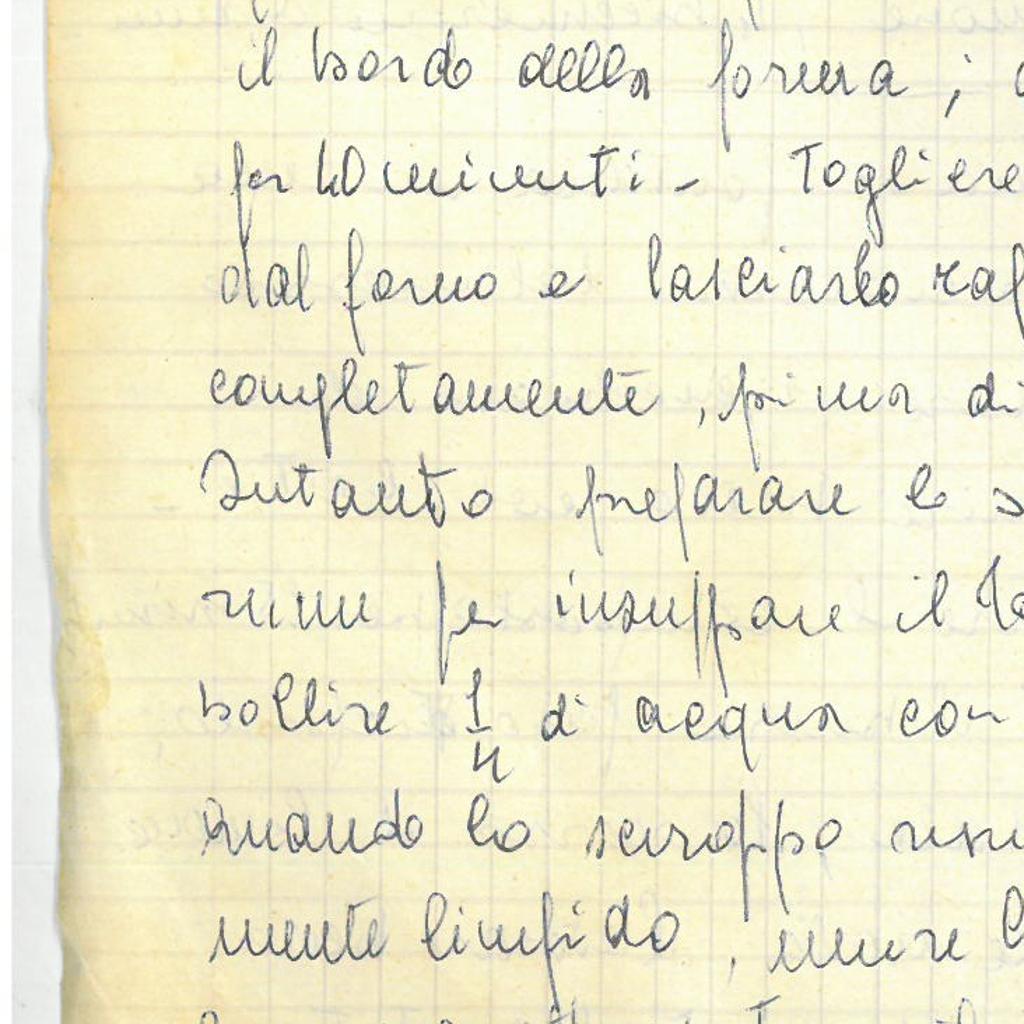 il bordo della forma ;
per 40 minuti - Togliere
dal forno e lasciarlo raf
completamente, prima di
Intanto preparare lo s
rum per insuppare il
bollire 1/4 di acqua con
quando lo sciroppo
mente limpido, unire